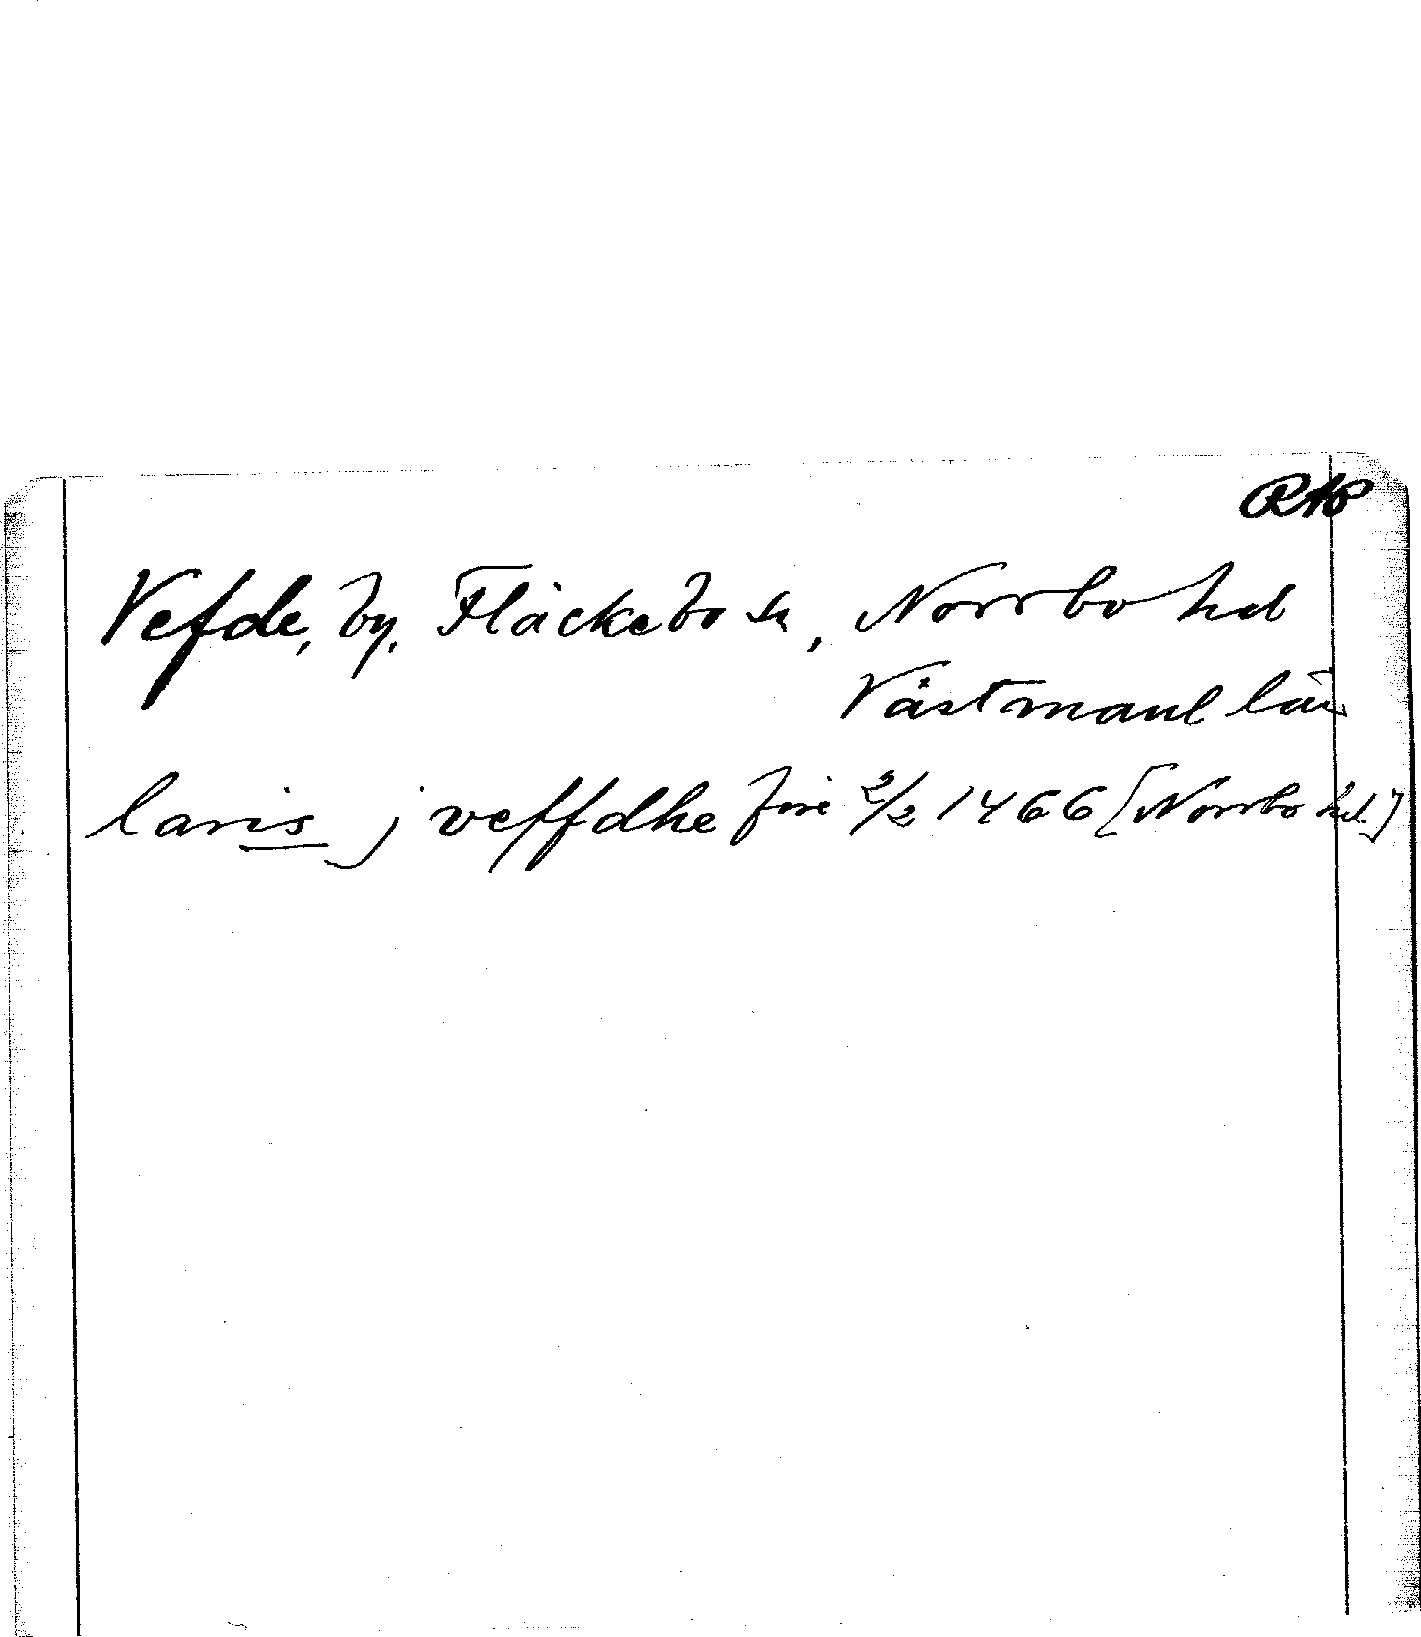 RAP
Vefde, by, Fläckebo sn, Norrbo hd
Västmanl län
laris j veffdhe fore 2/2 1466 [Norrbo hd]